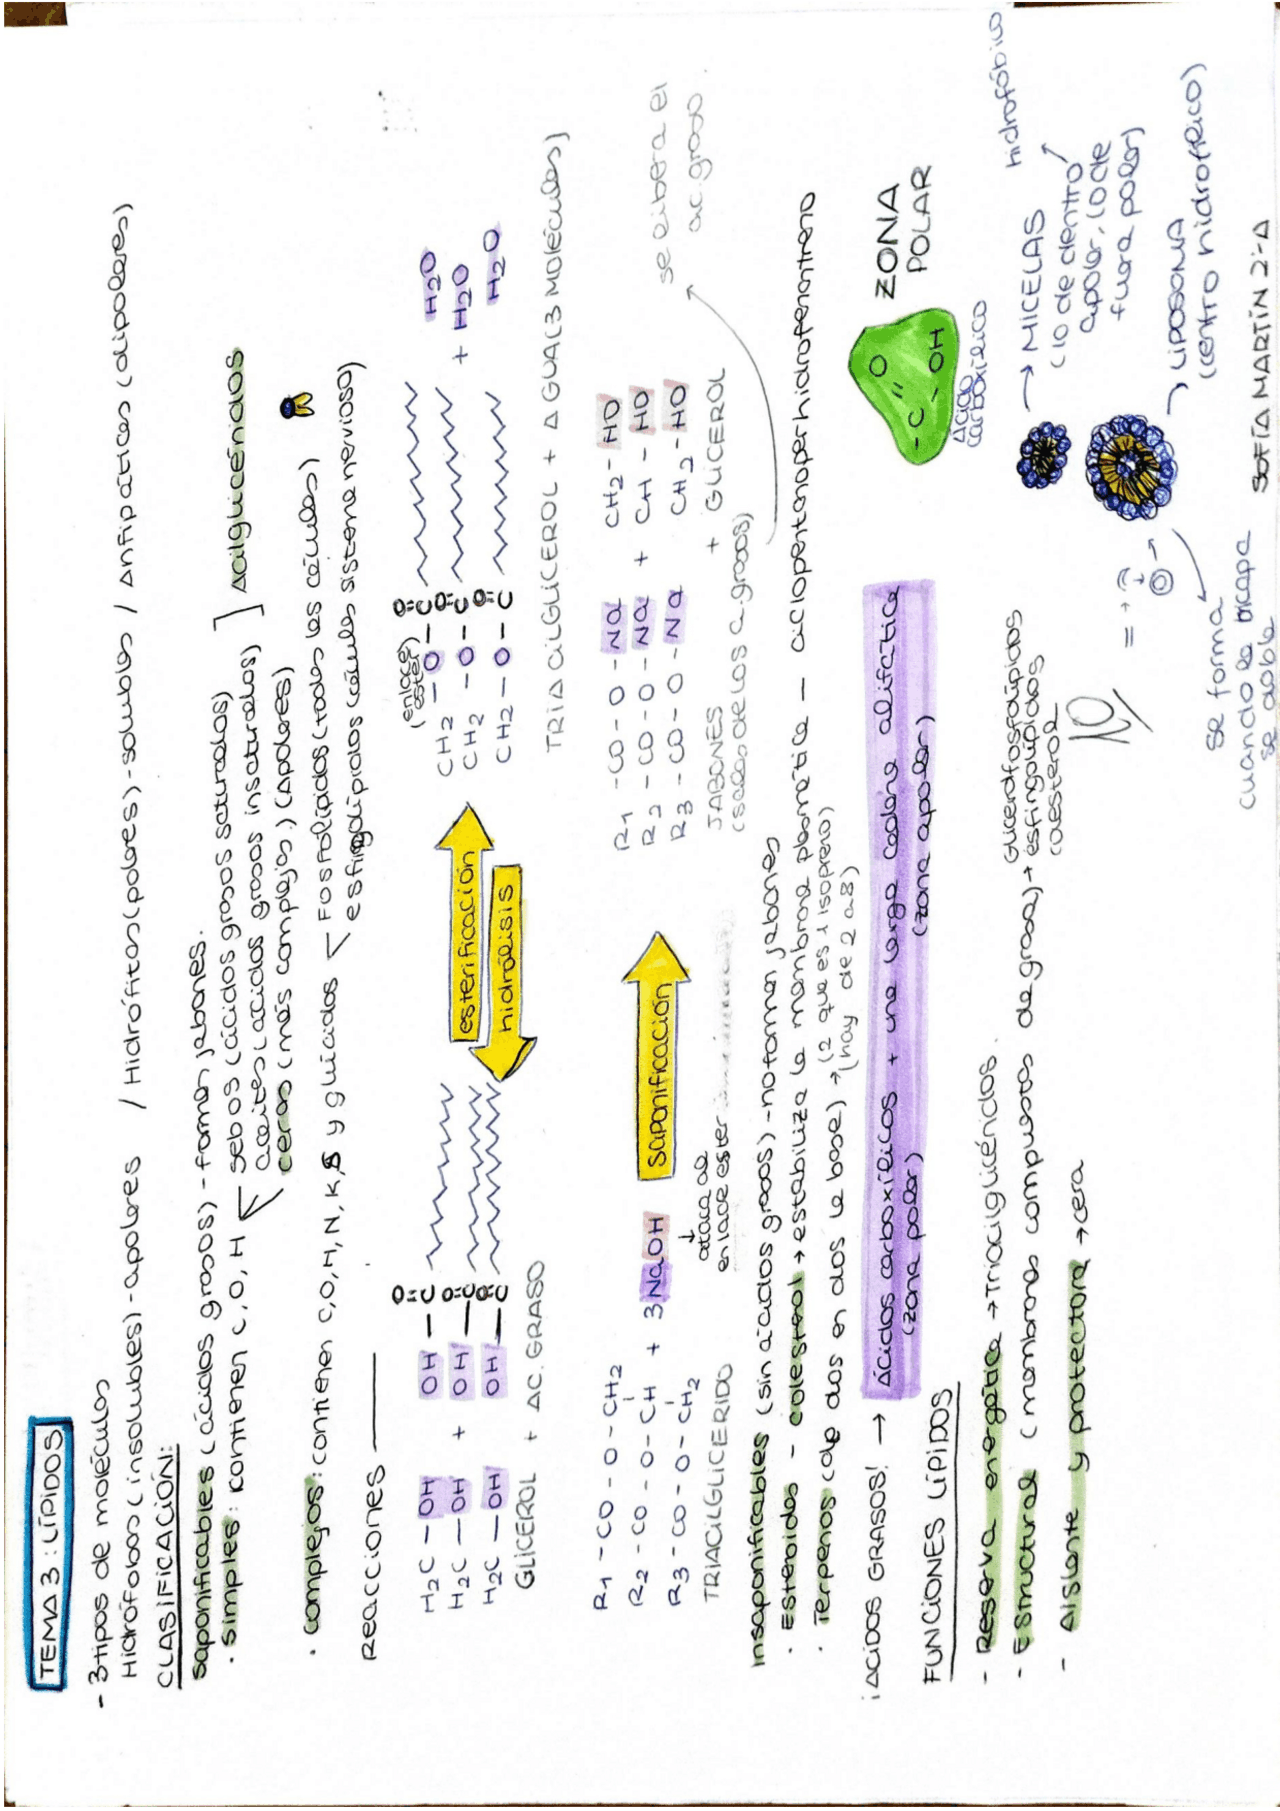 TEMA 3: LÍPIDOS
- 3 tipos de moléculas
Hidrófobos (insolubles) - apolares / Hidrófitos (polares) - solubles / Anfipáticas (dipolares)
CLASIFICACIÓN:
Saponificables (ácidos grasos) - forman jabones.
· Simples: contienen C, O, H < sebos (ácidos grasos saturados)
aceites (acidos grasos insaturados) ] Acilglicéridos
ceras (más complejos.) (Apolares)
· Complejos: contienen C, O, H, N, K, S y glúcidos < Fosfolípidos (todas las células)
esfingolípidos (células sistema nervioso)
Reacciones
(enlace ester)
H2C - OH OH - C=O CH2 - O - C=O H2O
H2C - OH + OH - C=O esterificación CH2 - O - C=O + H2O
H2C - OH OH - C=O hidrólisis CH2 - O - C=O H2O
GLICEROL + AC. GRASO TRIACILGLICEROL + AGUA (3 MOLÉCULAS)
R1 - CO - O - CH2 R1 - CO - O - Na CH2 - HO
R2 - CO - O - CH + 3NaOH saponificación R2 - CO - O - Na + CH - HO
R3 - CO - O - CH2 R3 - CO - O - Na CH2 - HO
TRIACILGLICERIDO ataca al enlace ester JABONES + GLICEROL
(sales de los a. grasos)
se libera el
ac. graso.
Insaponificables (sin ácidos grasos) - no forman jabones
· Esteroides - colesterol → estabiliza la membrana plasmática - ciclopentanoperhidrofenantreno
· Terpenos (de dos en dos la base) → (2 que es 1 isopreno)
(hay de 2 a 8)
¡ÁCIDOS GRASOS! → Ácidos carboxílicos + una larga cadena alifática
(zona polar) (zona apolar)
-C=O - OH
Ácido carboxílico
ZONA POLAR
FUNCIONES LÍPIDOS
- Reserva energética → Triacilglicéridos.
- Estructural (membranas compuestas de grasa) → Glicerofosfolípidos
esfingolípidos
colesterol
- Aislante y protectora → cera
10
→ MICELAS
(lo de dentro apolar, lo de fuera polar)
hidrofóbico
→ LIPOSOMA
(centro hidrofílico)
se forma
cuando la bicapa
se dobla
SOFÍA MARTÍN 2ºA